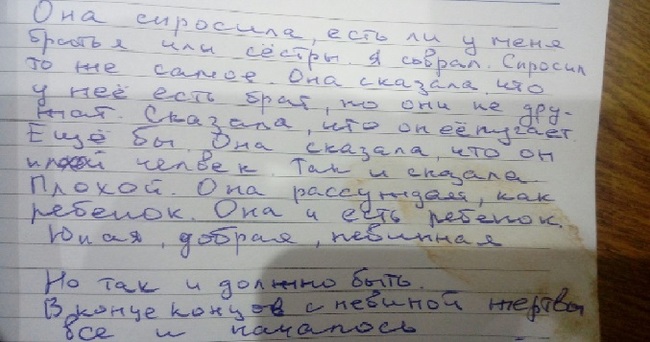 Она спросила, есть ли у меня
братья или сёстры. Я соврал. Спросил
то же самое. Она сказала, что
у неё есть брат, но они не дру-
жат. Сказала, что он её пугает.
Ещё бы. Она сказала, что он
плохой человек. Так и сказала
Плохой. Она рассуждала, как
ребенок. Она и есть ребенок.
Юная, добрая, невинная
Но так и должно быть.
В конце концов с невиной жертвы
все и началось